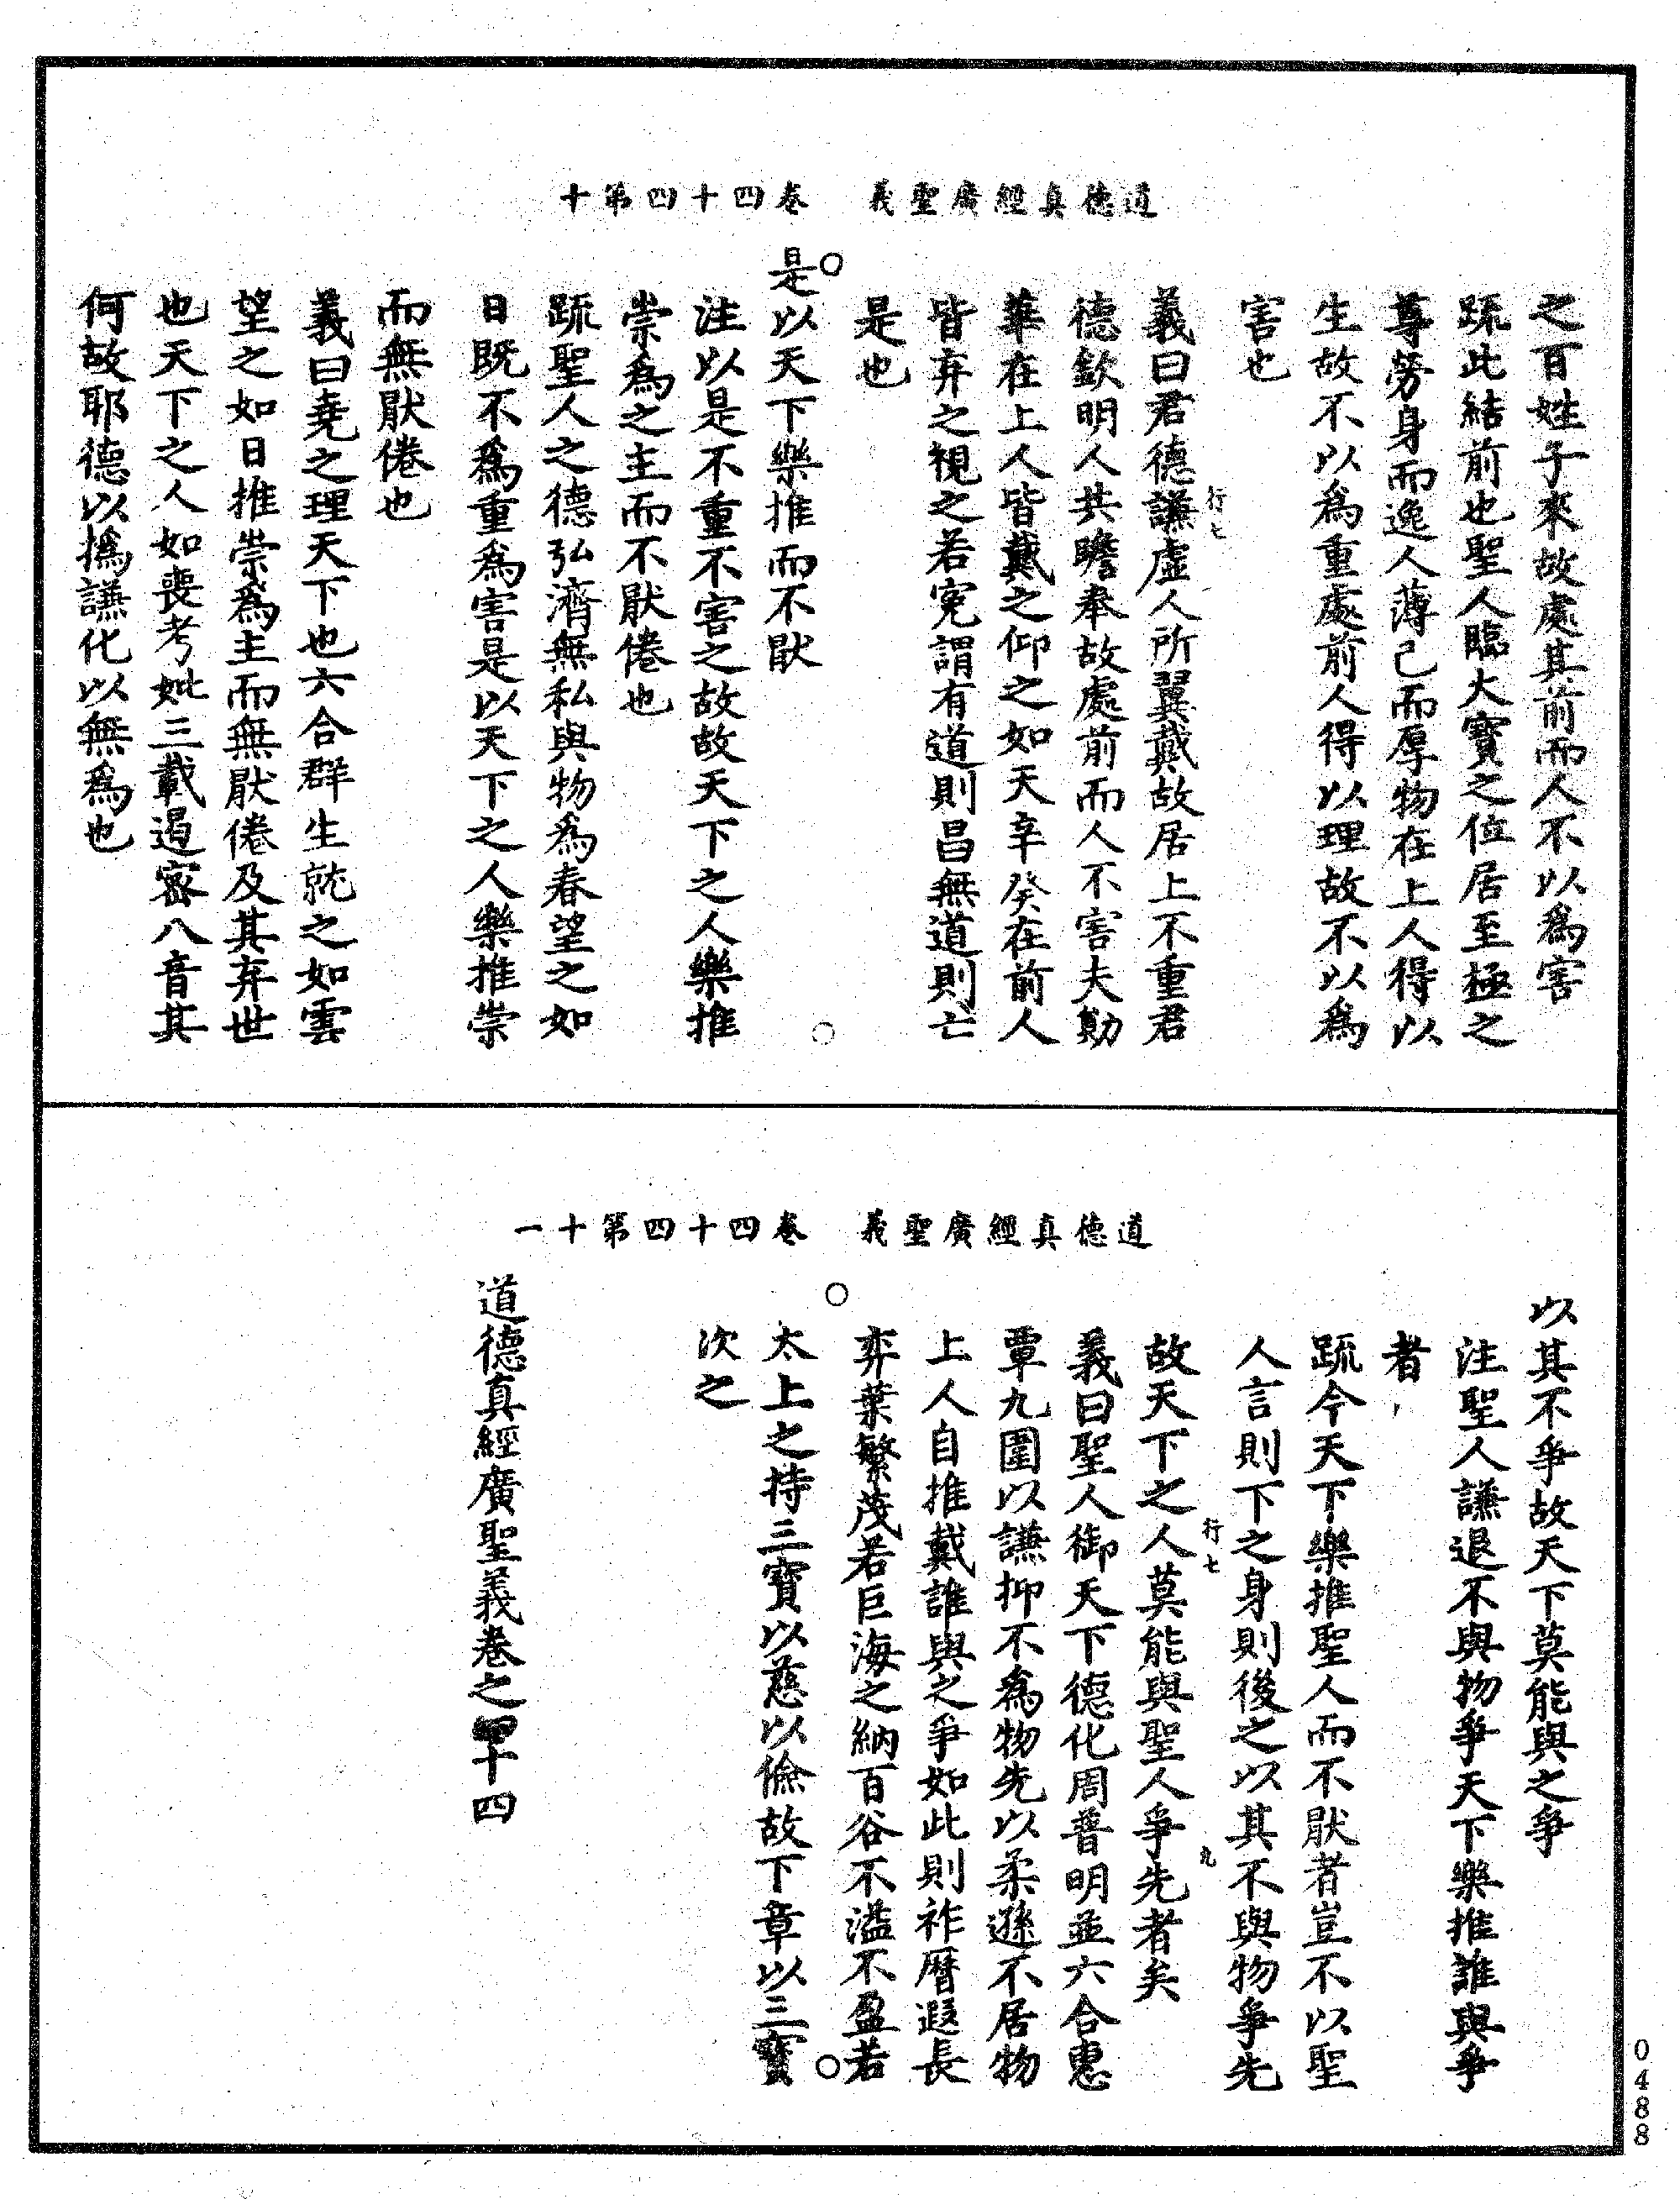 道德真經廣聖義　卷四十四第十
之百姓子來故處其前而人不以為害
疏此結前也聖人臨大寶之位居至極之
尊勞身而逸人薄己而厚物在上人得以
生故不以為重處前人得以理故不以為
害也
義曰君德謙虛人所翼戴故居上不重君
德欽明人共瞻奉故處前而人不害夫勛
華在上人皆戴之仰之如天辛癸在前人
皆弃之視之若寃謂有道則昌無道則亡
是也
行七
○是以天下樂推而不猒
注以是不重不害之故故天下之人樂推
崇為之主而不猒倦也
疏聖人之德弘濟無私與物為春望之如
日既不為重為害是以天下之人樂推崇
而無猒倦也
義曰堯之理天下也六合群生就之如雲
望之如日推崇為主而無猒倦及其弃世
也天下之人如喪考妣三載遏密八音其
何故耶德以撝謙化以無為也
道德真經廣聖義　卷四十四第十一
以其不爭故天下莫能與之爭
注聖人謙退不與物爭天下樂推誰與爭
者
疏今天下樂推聖人而不猒者豈不以聖
人言則下之身則後之以其不與物爭先
故天下之人莫能與聖人爭先者矣
行七
九
義曰聖人御天下德化周普明並六合惠
覃九圍以謙抑不為物先以柔遜不居物
上人自推戴誰與之爭如此則祚曆遐長
弈葉繁茂若巨海之納百谷不溢不盈若
○太上之持三寶以慈以儉故下章以三寶
次之
道德真經廣聖義卷之四十四
0488